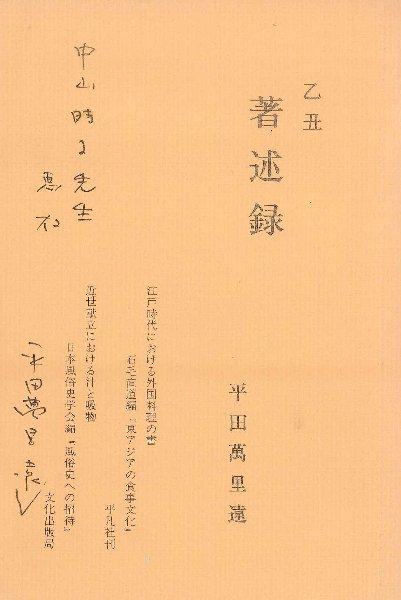 乙丑
著述録
平田萬里遠
江戸時代における外国料理の書
石毛直道編『東アジアの食事文化』
平凡社刊
近世献立における汁と吸物
日本風俗史学会編『風俗史への招待』
文化出版局
中山時子先生
恵存
平田萬里遠